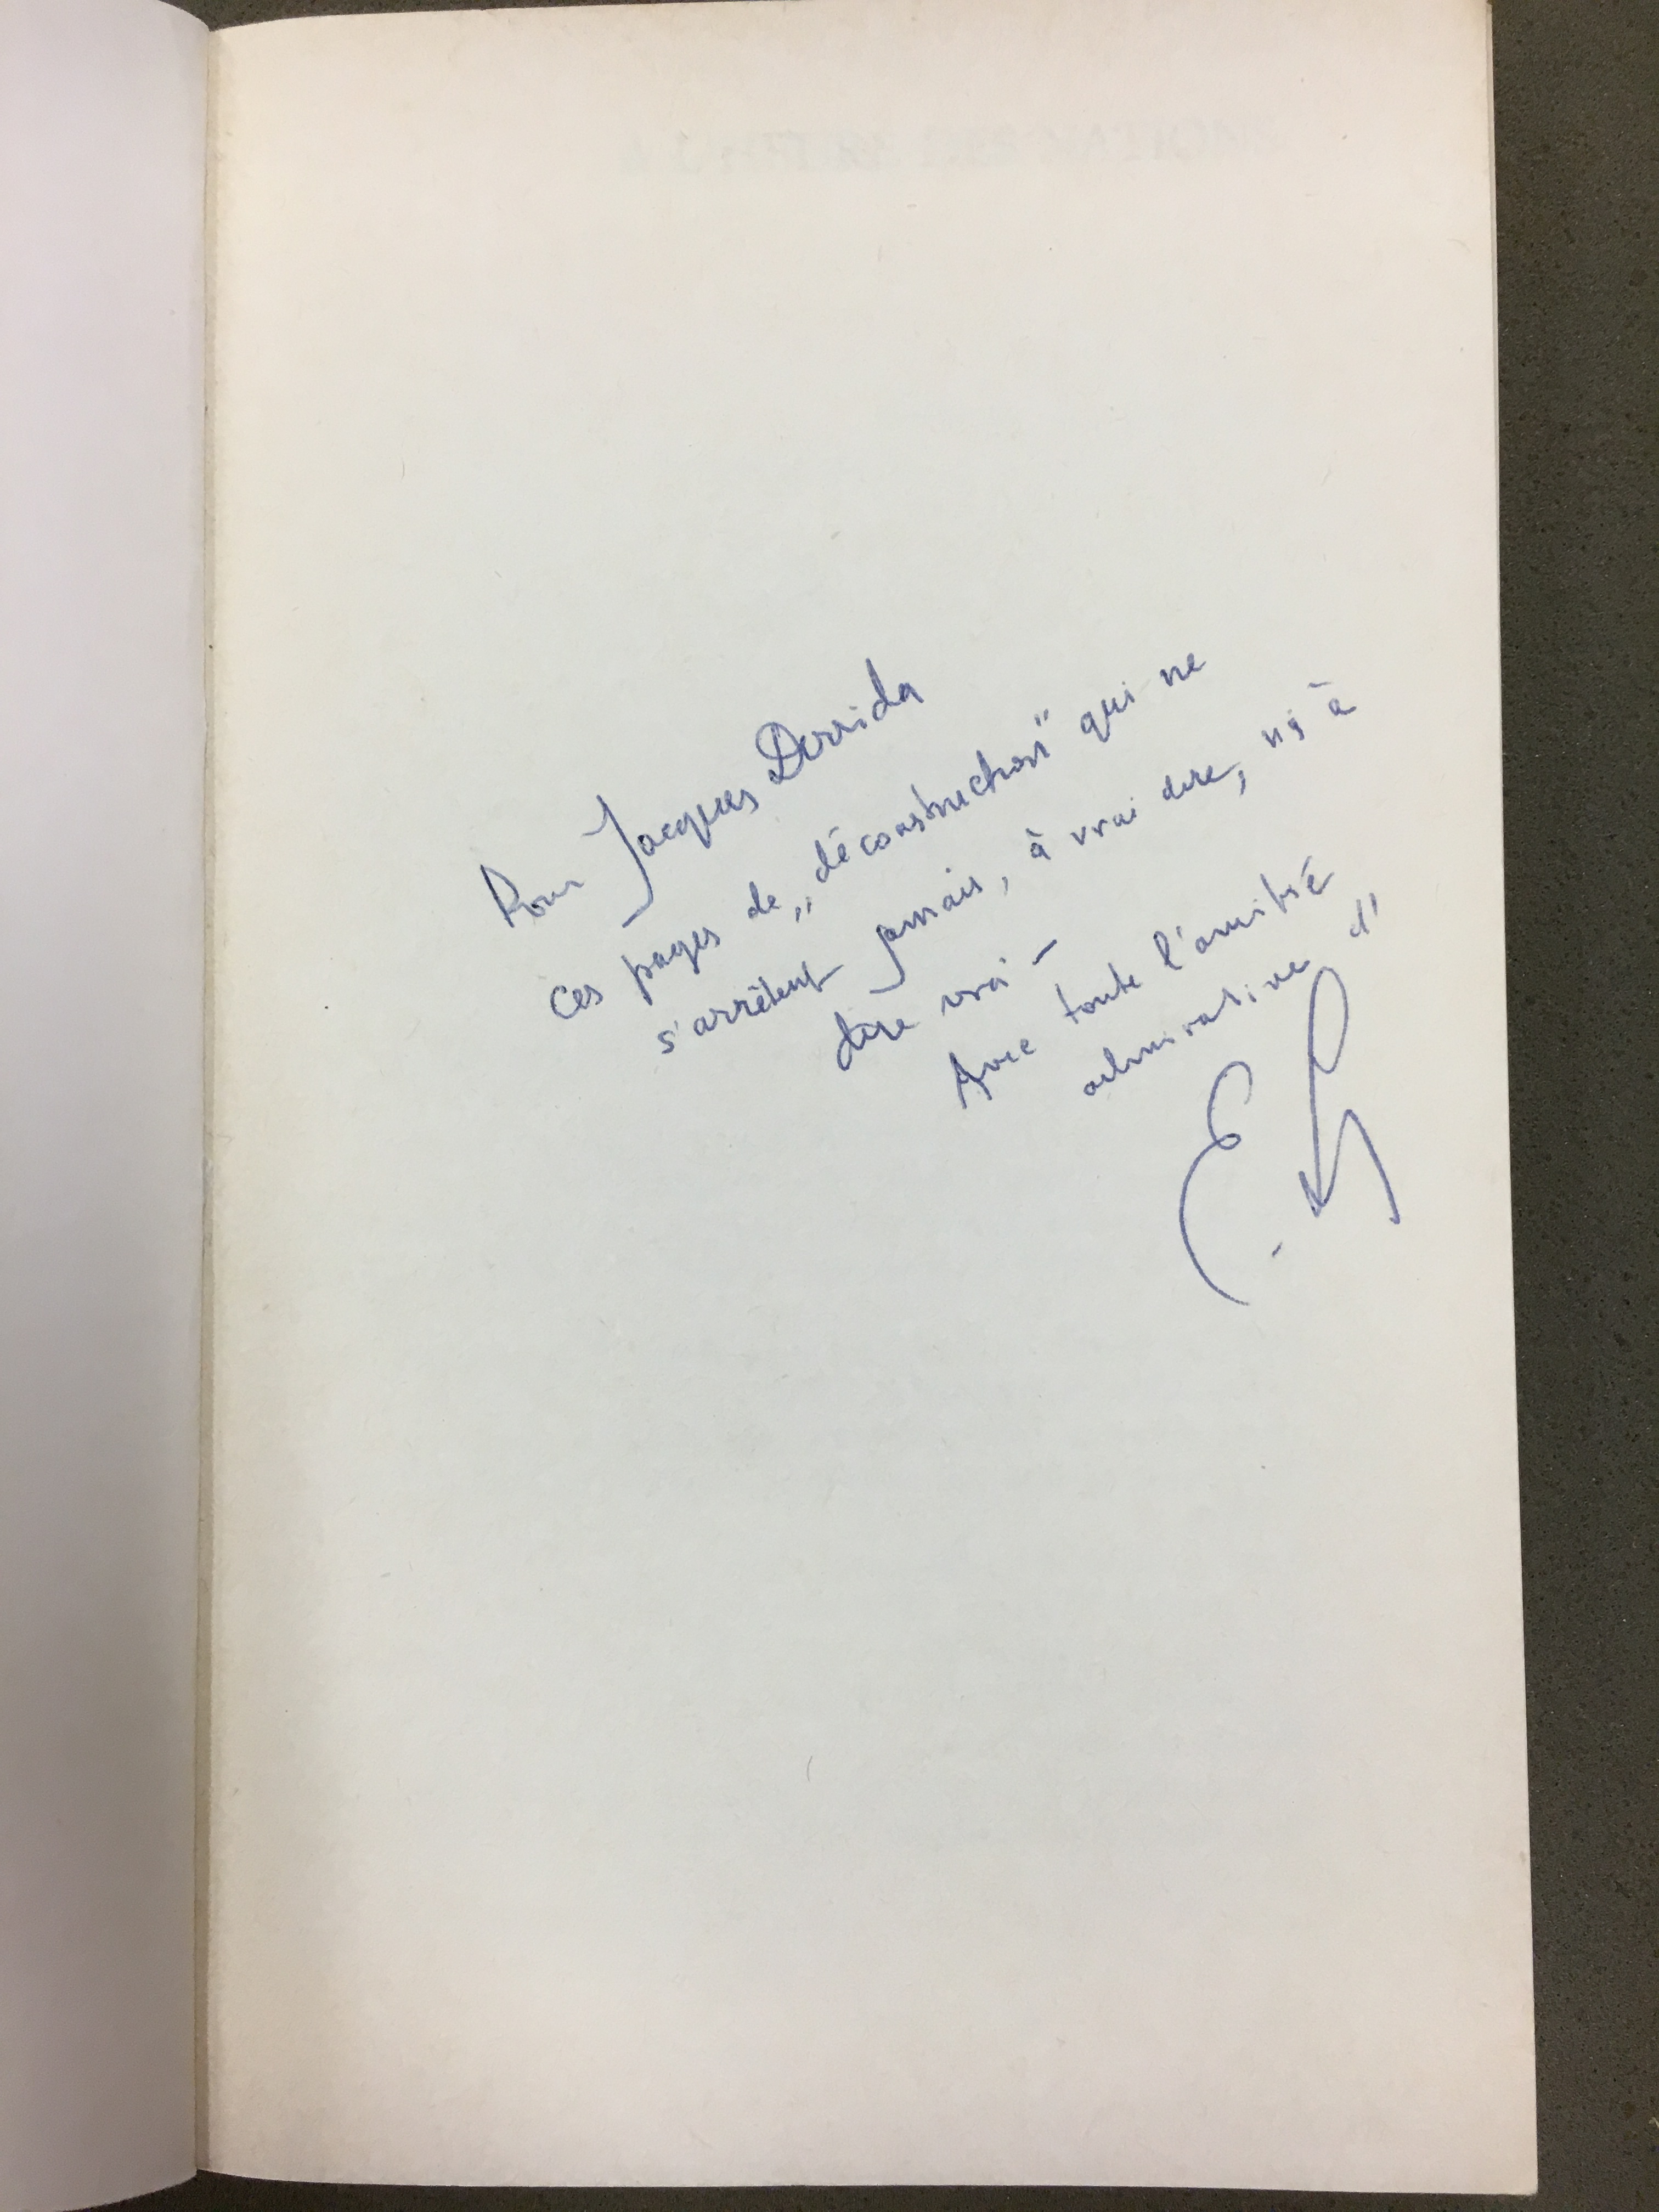 Pour Jacques Derrida
ces pages de „déconstruction" qui ne
s'arrêtent jamais, à vrai dire, ni à
dire vrai –
Avec toute l'amitié
admirative d'
E.